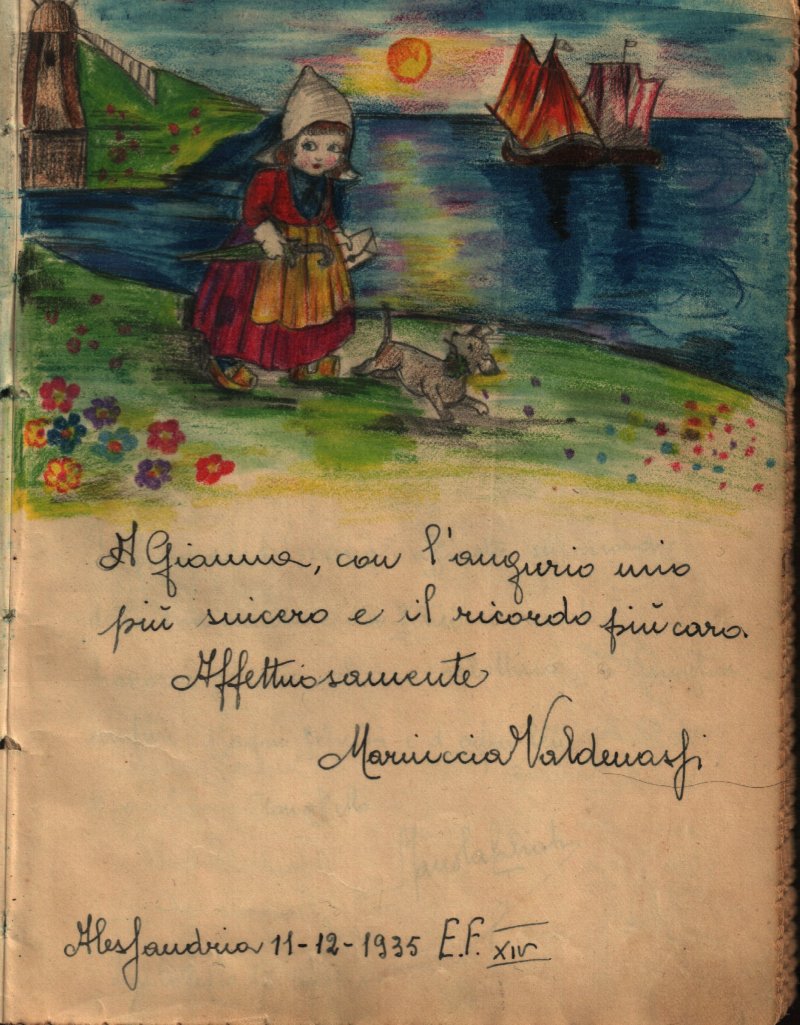 A Gianna, con l'augurio mio
più sincero e il ricordo più caro.
Affettuosamente
Mariuccia Valdenassi
Alessandria 11-12-1935 E.F. XIV